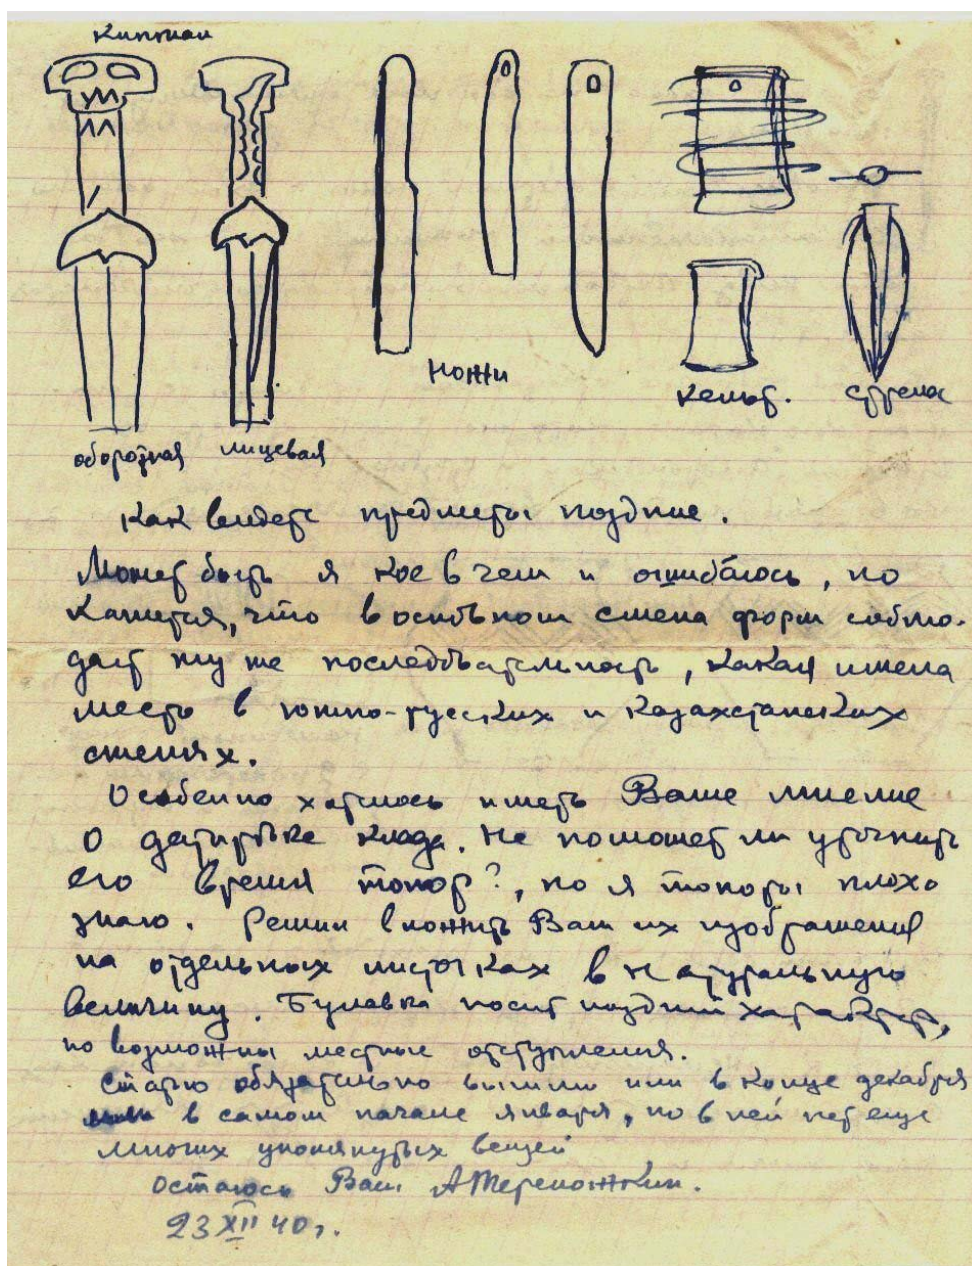 Кинжал
ножи
кельт.
стрела
оборотная лицевая
Как видете предметы поздние.
Может быть я кое в чем и ошибаюсь, но
кажется, что в основном смена форм соблю-
дает ту же последовательность, какая имела
место в южно-русских и казахстанских
степях.
Особенно хотелось иметь Ваше мнение
о датировке клада. Не поможет ли уточнить
его время топор?, но я топоры плохо
знаю. Решил вложить Вам их изображения
на отдельных листочках в натуральную
величину. Булавка носит поздний характер,
но возможны местные отступления.
Статью обязательно вышлю или в конце декабря
или в самом начале января, но в ней нет еще
многих упомянутых вещей
Остаюсь Ваш АТереножкин.
23 XII 40 г.